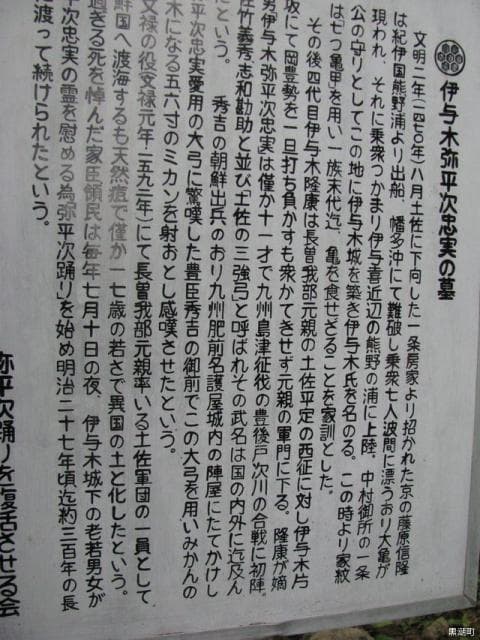 伊与木弥平次忠実の墓
文明二年(一四七〇年)八月土佐に下向した一条房家より招かれた京の藤原信隆
は紀伊国熊野浦より出船、幡多沖にて難破し乗衆七人波間に漂うおり大亀が
現われ、それに乗衆つかまり伊与喜近辺の熊野の浦に上陸、中村御所の一条
公の守りとしてこの地に伊与木城を築き伊与木氏を名のる。この時より家紋
は七つ亀甲を用い一族末代迄、亀を食せざることを家訓とした。
その後四代目伊与木隆康は長曽我部元親の土佐平定の西征に対し伊与木片
坂にて岡豊勢を一旦打ち負かすも衆かてきせず元親の軍門に下る。隆康が嫡
男伊与木弥平次忠実は僅か十一才で九州島津征伐の豊後戸次川の合戦に初陣、
佐竹義秀志和勘助と並び「土佐の三強弓」と呼ばれその武名は国の内外に迄及ん
だという。 秀吉の朝鮮出兵のおり九州肥前名護屋城内の陣屋にたてかけし
弥平次忠実愛用の大弓に驚嘆した豊臣秀吉の御前でこの大弓を用いみかんの
木になる五六寸のミカンを射おとし感嘆させたという。
文禄の役文禄元年(一五九二年)にて長曽我部元親率いる土佐軍団の一員として
鮮国へ渡海するも天然痘で僅か一七歳の若さで異国の土と化したという。
過ぎる死を悼んだ家臣領民は毎年七月十日の夜、伊与木城下の老若男女が
次忠実の霊を慰める為「弥平次踊り」を始め明治二十七年頃迄約三百年の長
渡って続けられたという。
弥平次踊りを復活させる会
黒潮町